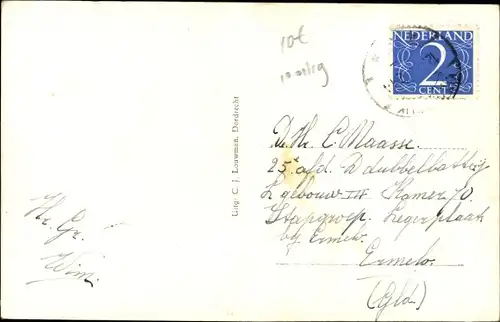 10t
NEDERLAND
2
CENT
D. Hr. C. Maasse.
25e afd. D dubbelbattrij
L gebouw III Kamer 10
Stafgroep. Legerplaats
bij Ermelo.
Ermelo.
(Gld.)
Uitg. C. J. Louwman, Dordrecht
Hr. Gr.
Wim.